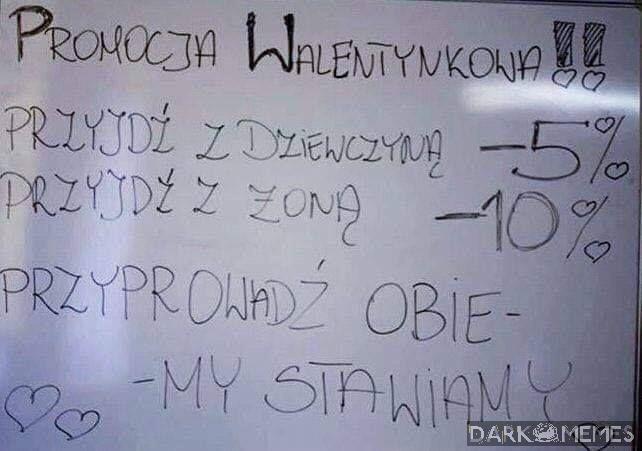 PROMOCJA WALENTYNKOWA!!
PRZYJDŹ Z DZIEWCZYNĄ -5%
PRZYJDŹ Z ŻONĄ -10%
PRZYPROWADŹ OBIE-
-MY STAWIAMY
DARK MEMES